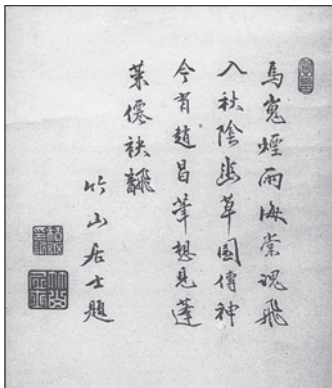 馬嵬煙雨海棠魂飛
入秋陰幽草園傳神
今有趙昌筆想見蓬
莱僊袂飜
竹山居士題